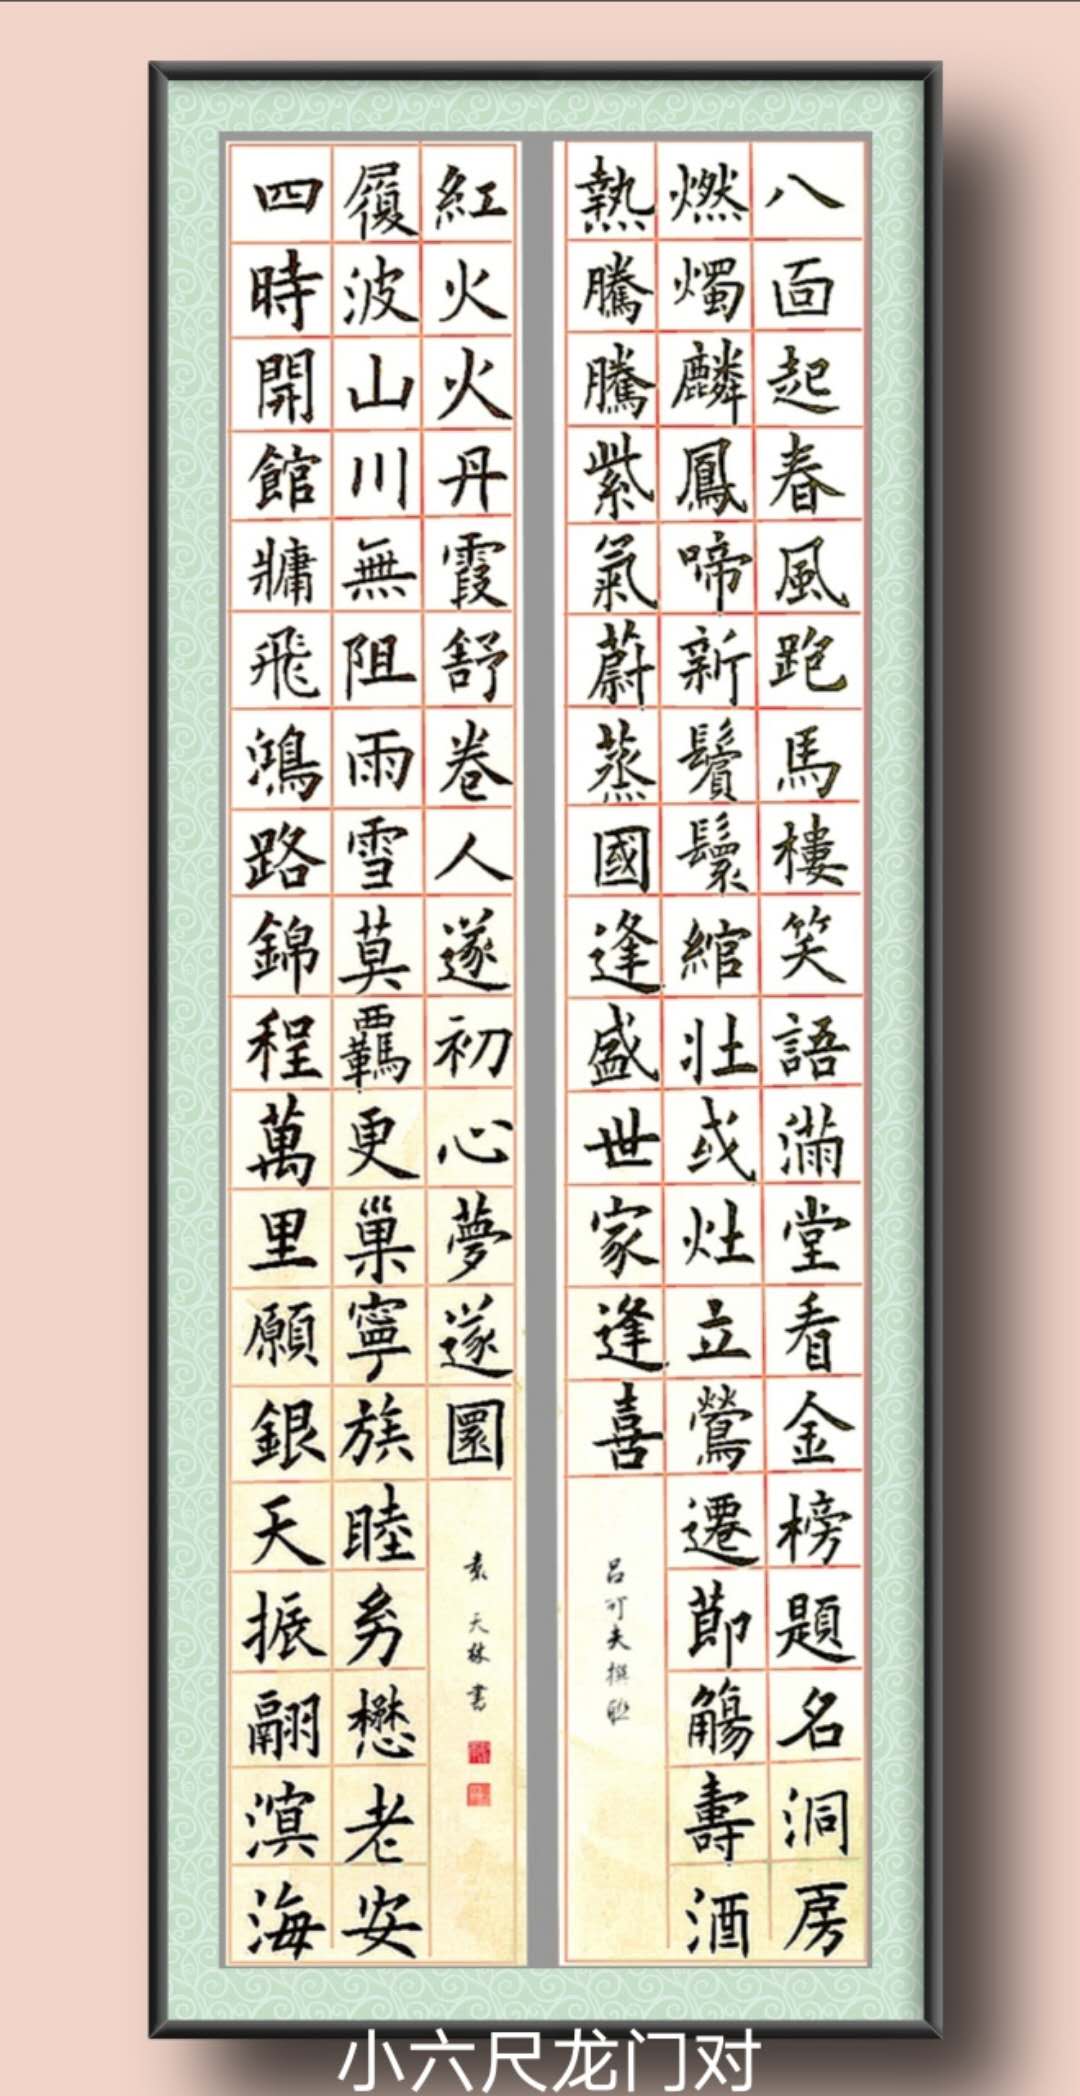 八面起春風跑馬樓笑語滿堂看金榜題名洞房
燃燭麟鳳啼新鬢鬟綰壯或灶立鶯遷節觴壽酒
熱騰騰紫氣蔚蒸國逢盛世家逢喜
吕可夫撰聯
四時開館牅飛鴻路錦程萬里願銀天振翮溟海
履波山川無阻雨雪莫羈更巢寧族睦幼懋老安
紅火火丹霞舒卷人遂初心夢遂圜
袁天林書
小六尺龙门对